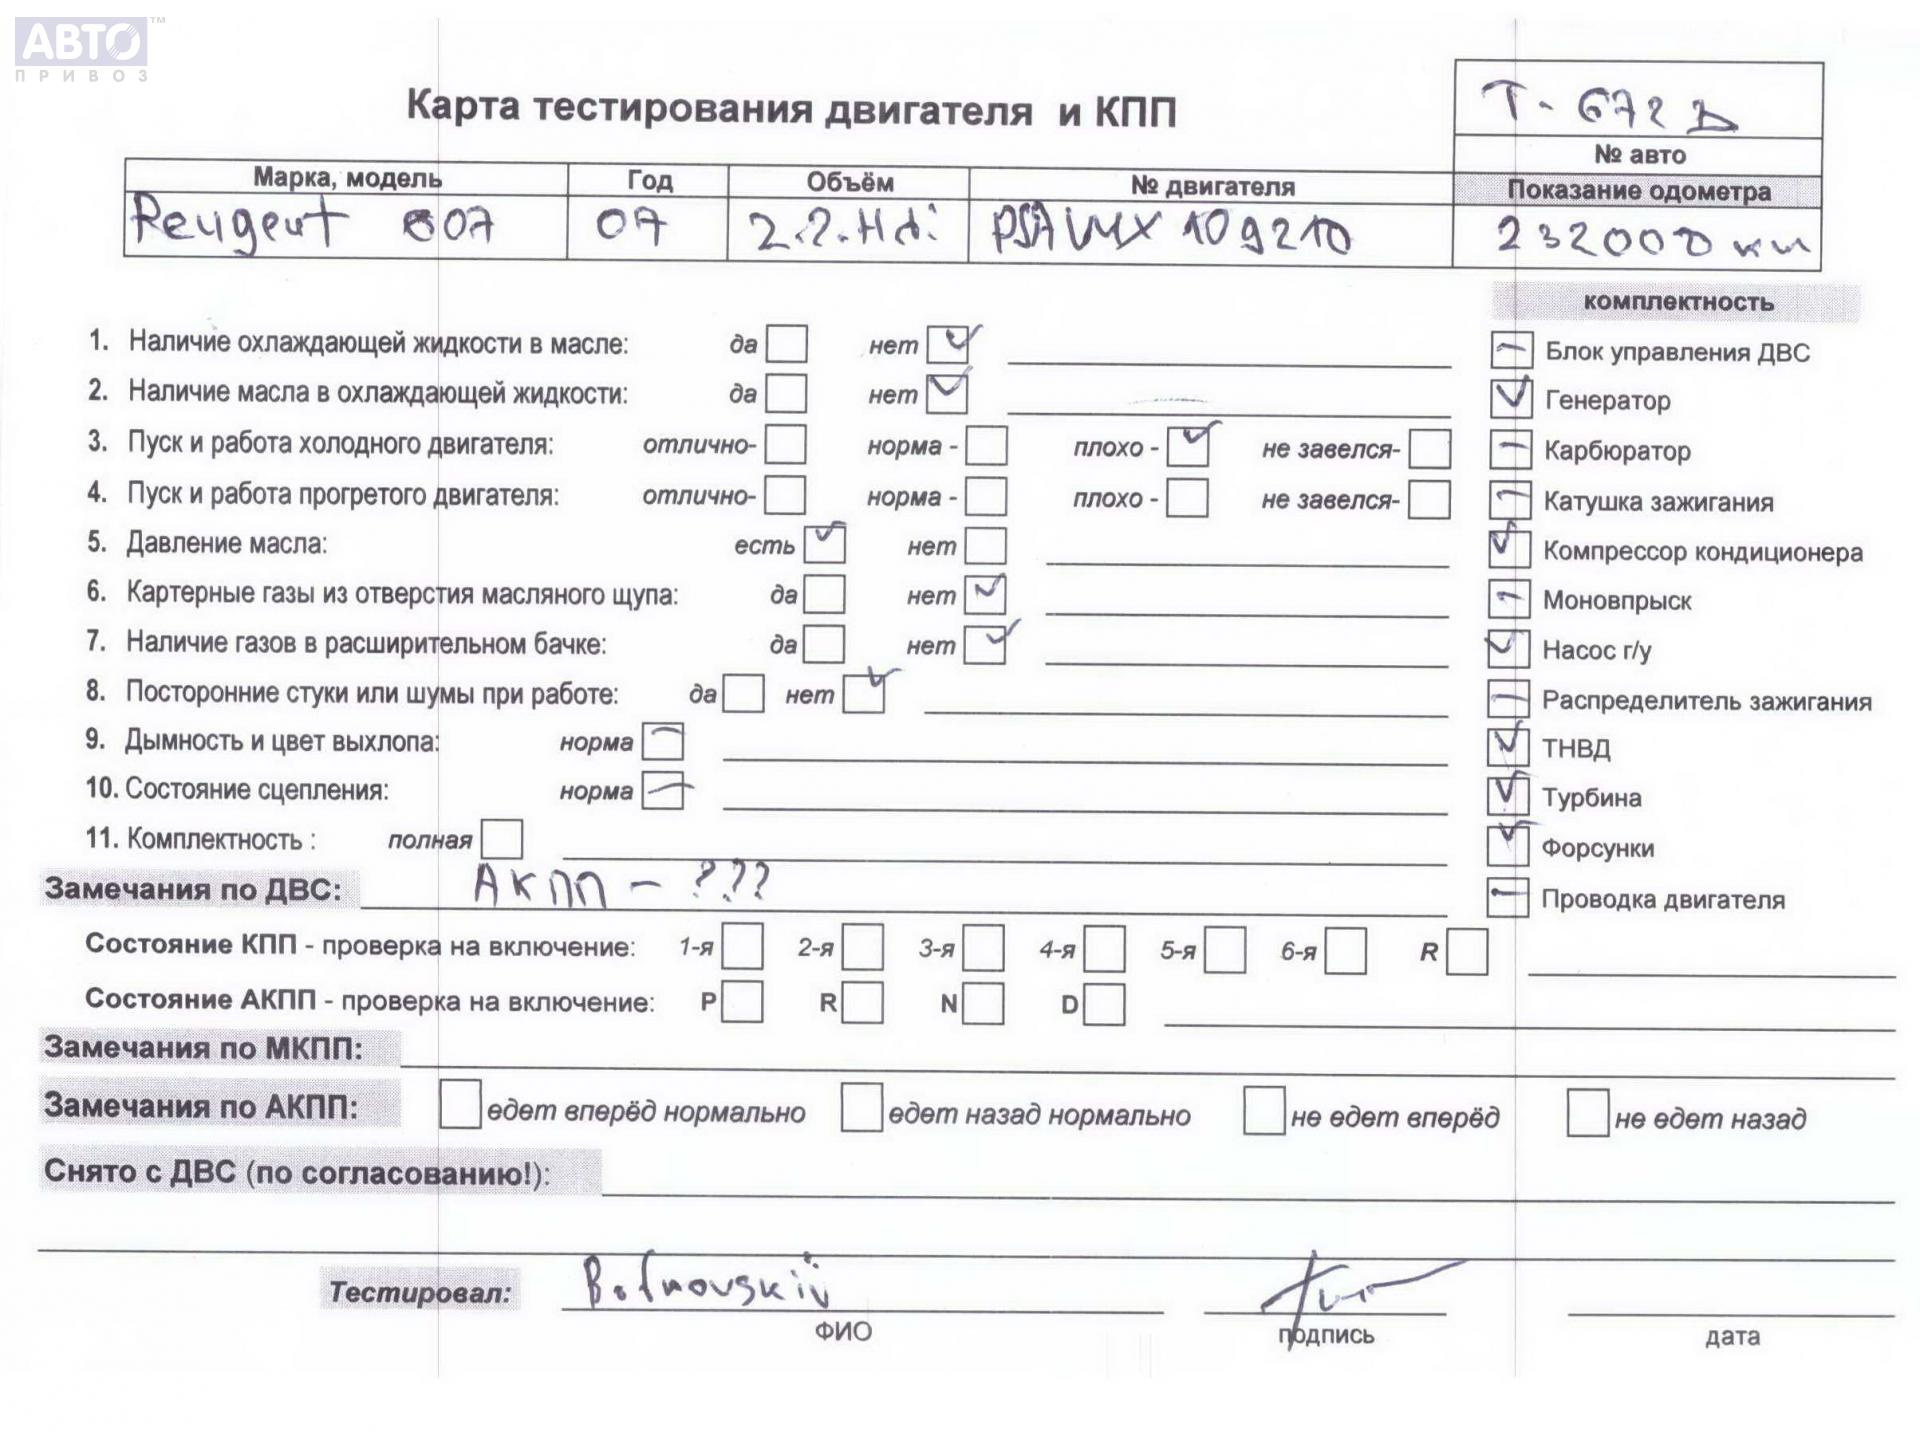 АВТО™
ПРИВОЗ
Карта тестирования двигателя и КПП
Т- 672 D
№ авто
Марка, модель Год Объём № двигателя Показание одометра
Peugeot 607 07 2.2.Hdi 109210 232000 км
комплектность
1. Наличие охлаждающей жидкости в масле: да нет ✓
Блок управления ДВС
2. Наличие масла в охлаждающей жидкости: да нет ✓
Генератор ✓
3. Пуск и работа холодного двигателя: отлично- норма - плохо - ✓ не завелся-
Карбюратор
4. Пуск и работа прогретого двигателя: отлично- норма - плохо - не завелся-
Катушка зажигания
5. Давление масла: есть ✓ нет
Компрессор кондиционера ✓
6. Картерные газы из отверстия масляного щупа: да нет ✓
Моновпрыск
7. Наличие газов в расширительном бачке: да нет ✓
Насос г/у ✓
8. Посторонние стуки или шумы при работе: да нет ✓
Распределитель зажигания
9. Дымность и цвет выхлопа: норма
ТНВД ✓
10. Состояние сцепления: норма
Турбина ✓
11. Комплектность : полная
Форсунки ✓
Замечания по ДВС: АКПП - ???
Проводка двигателя
Состояние КПП - проверка на включение: 1-я 2-я 3-я 4-я 5-я 6-я R
Состояние АКПП - проверка на включение: P R N D
Замечания по МКПП:
Замечания по АКПП: едет вперёд нормально едет назад нормально не едет вперёд не едет назад
Снято с ДВС (по согласованию!):
Тестировал:
ФИО подпись дата